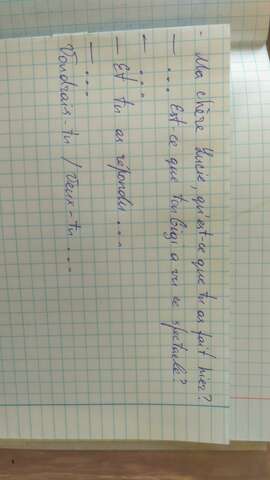 - Ma chère Lucie, qu'est-ce que tu as fait hier?
- ... Est-ce que ton Gigi a vu ce spectacle?
- ...
- Et tu as répondu ...
- ...
Voudrais-tu / veux-tu ...